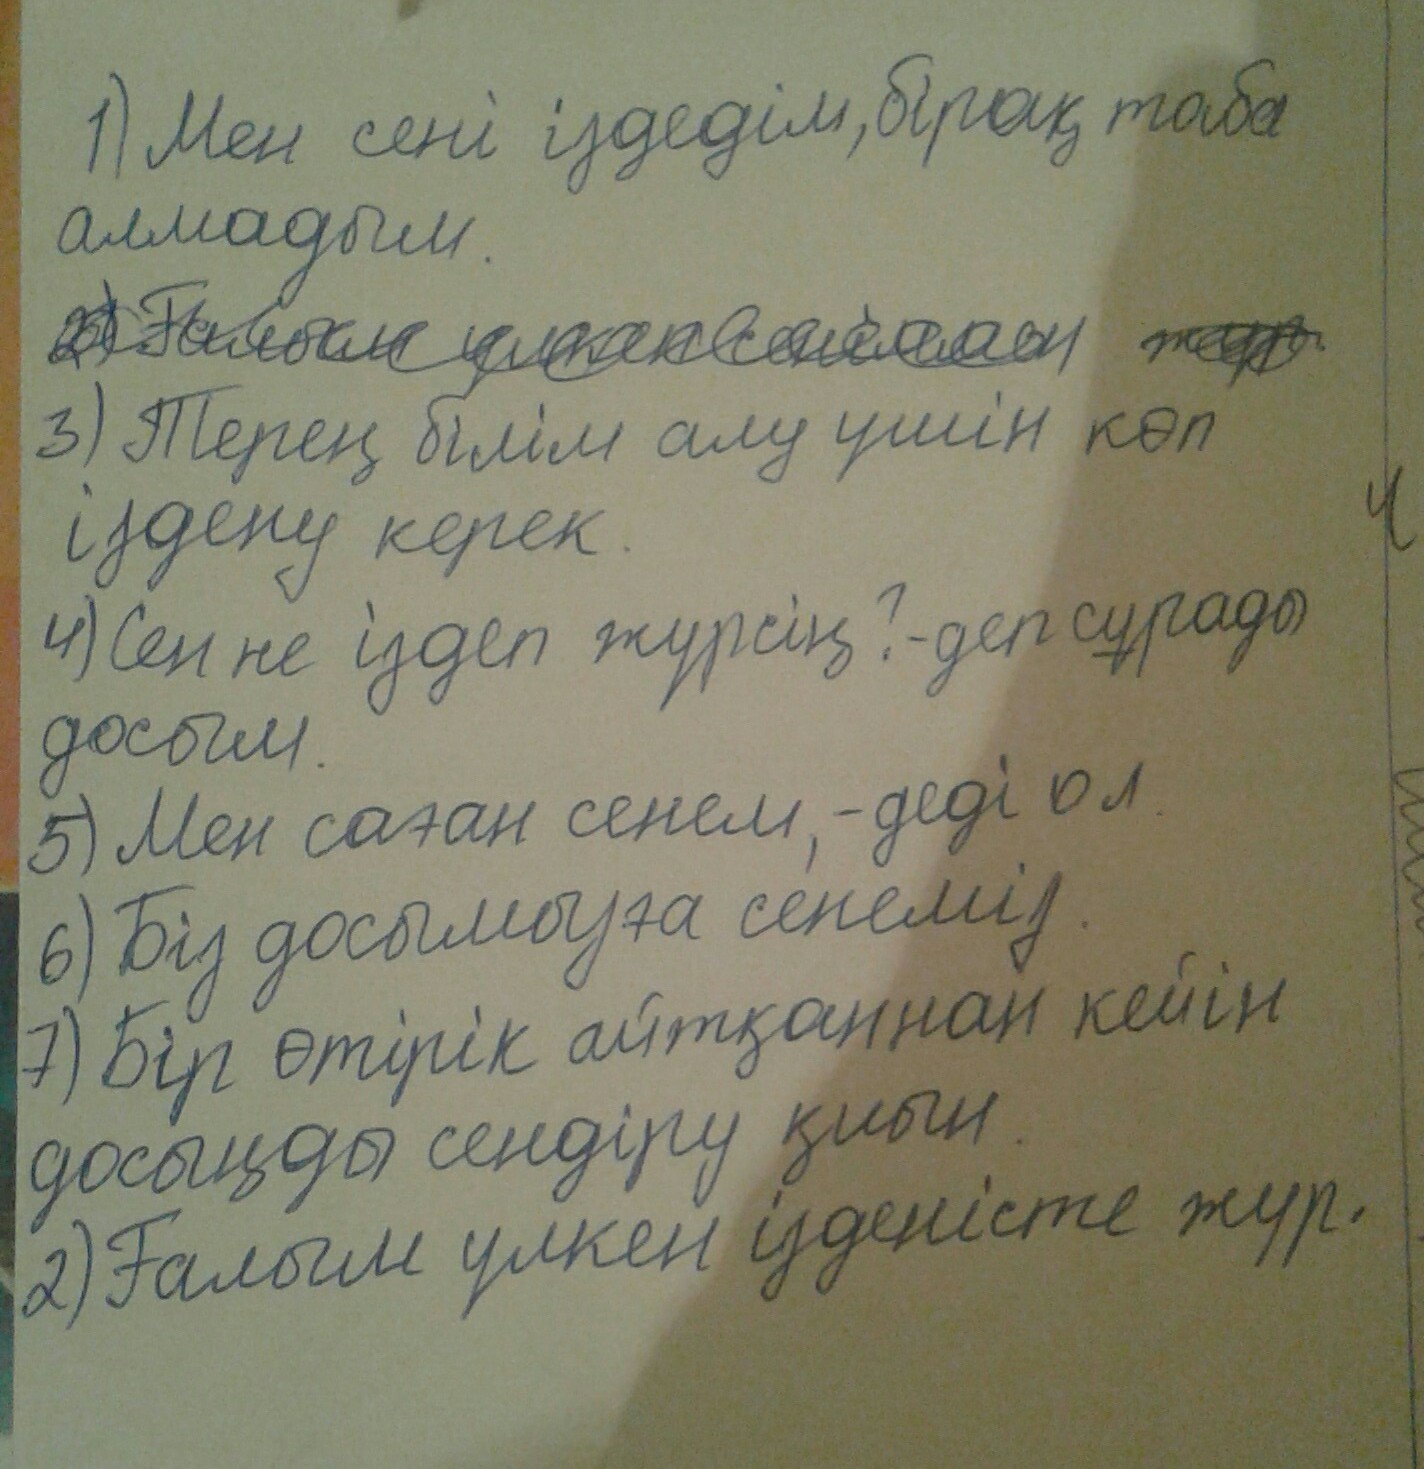 1) Мен сені іздедім, бірақ таба
алмадым.
3) Терең білім алу үшін көп
іздену керек.
4) Сен не іздеп жүрсің? - деп сұрады
досым.
5) Мен саған сенем, - деді ол.
6) Біз досымызға сенеміз.
7) Бір өтірік айтқаннан кейін
досыңды сендіру қиын.
2) Ғалым үлкен ізденісте жүр.